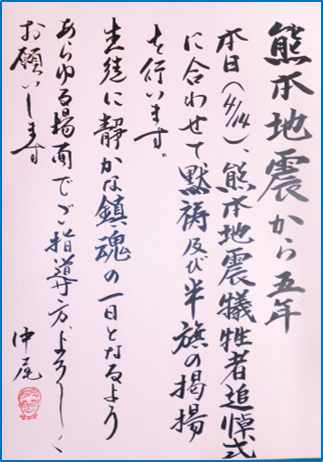 熊本地震から五年
本日(4/14)、熊本地震犠牲者追悼式
に合わせて黙祷及び半旗の掲揚
を行います。
生徒に静かな鎮魂の一日となるよう
あらゆる場面でご指導方、よろしく
お願いします
中尾